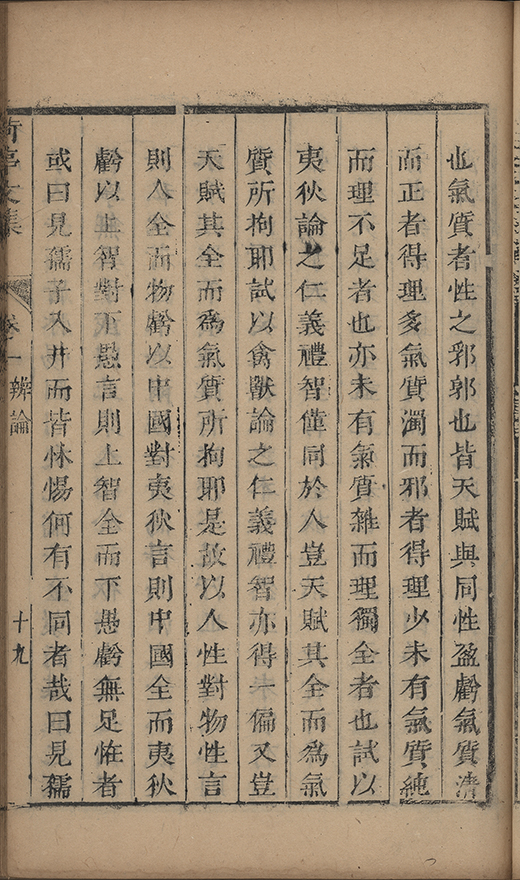 也氣質者性之郛郭也皆天賦與同性盈虧氣質清
而正者得理多氣質濁而邪者得理少未有氣質純
而理不足者也亦未有氣質雜而理獨全者也試以
夷狄論之仁義禮智僅同於人豈天賦其全而為氣
質所拘耶試以禽獸論之仁義禮智亦得一偏又豈
天賦其全而為氣質所拘耶是故以人性對物性言
則人全而物虧以中國對夷狄言則中國全而夷狄
虧以上智對下愚言則上智全而下愚虧無足怪者
或曰見孺子入井而皆怵惕何有不同者哉曰見孺
亭文集 卷一 辨論 十九